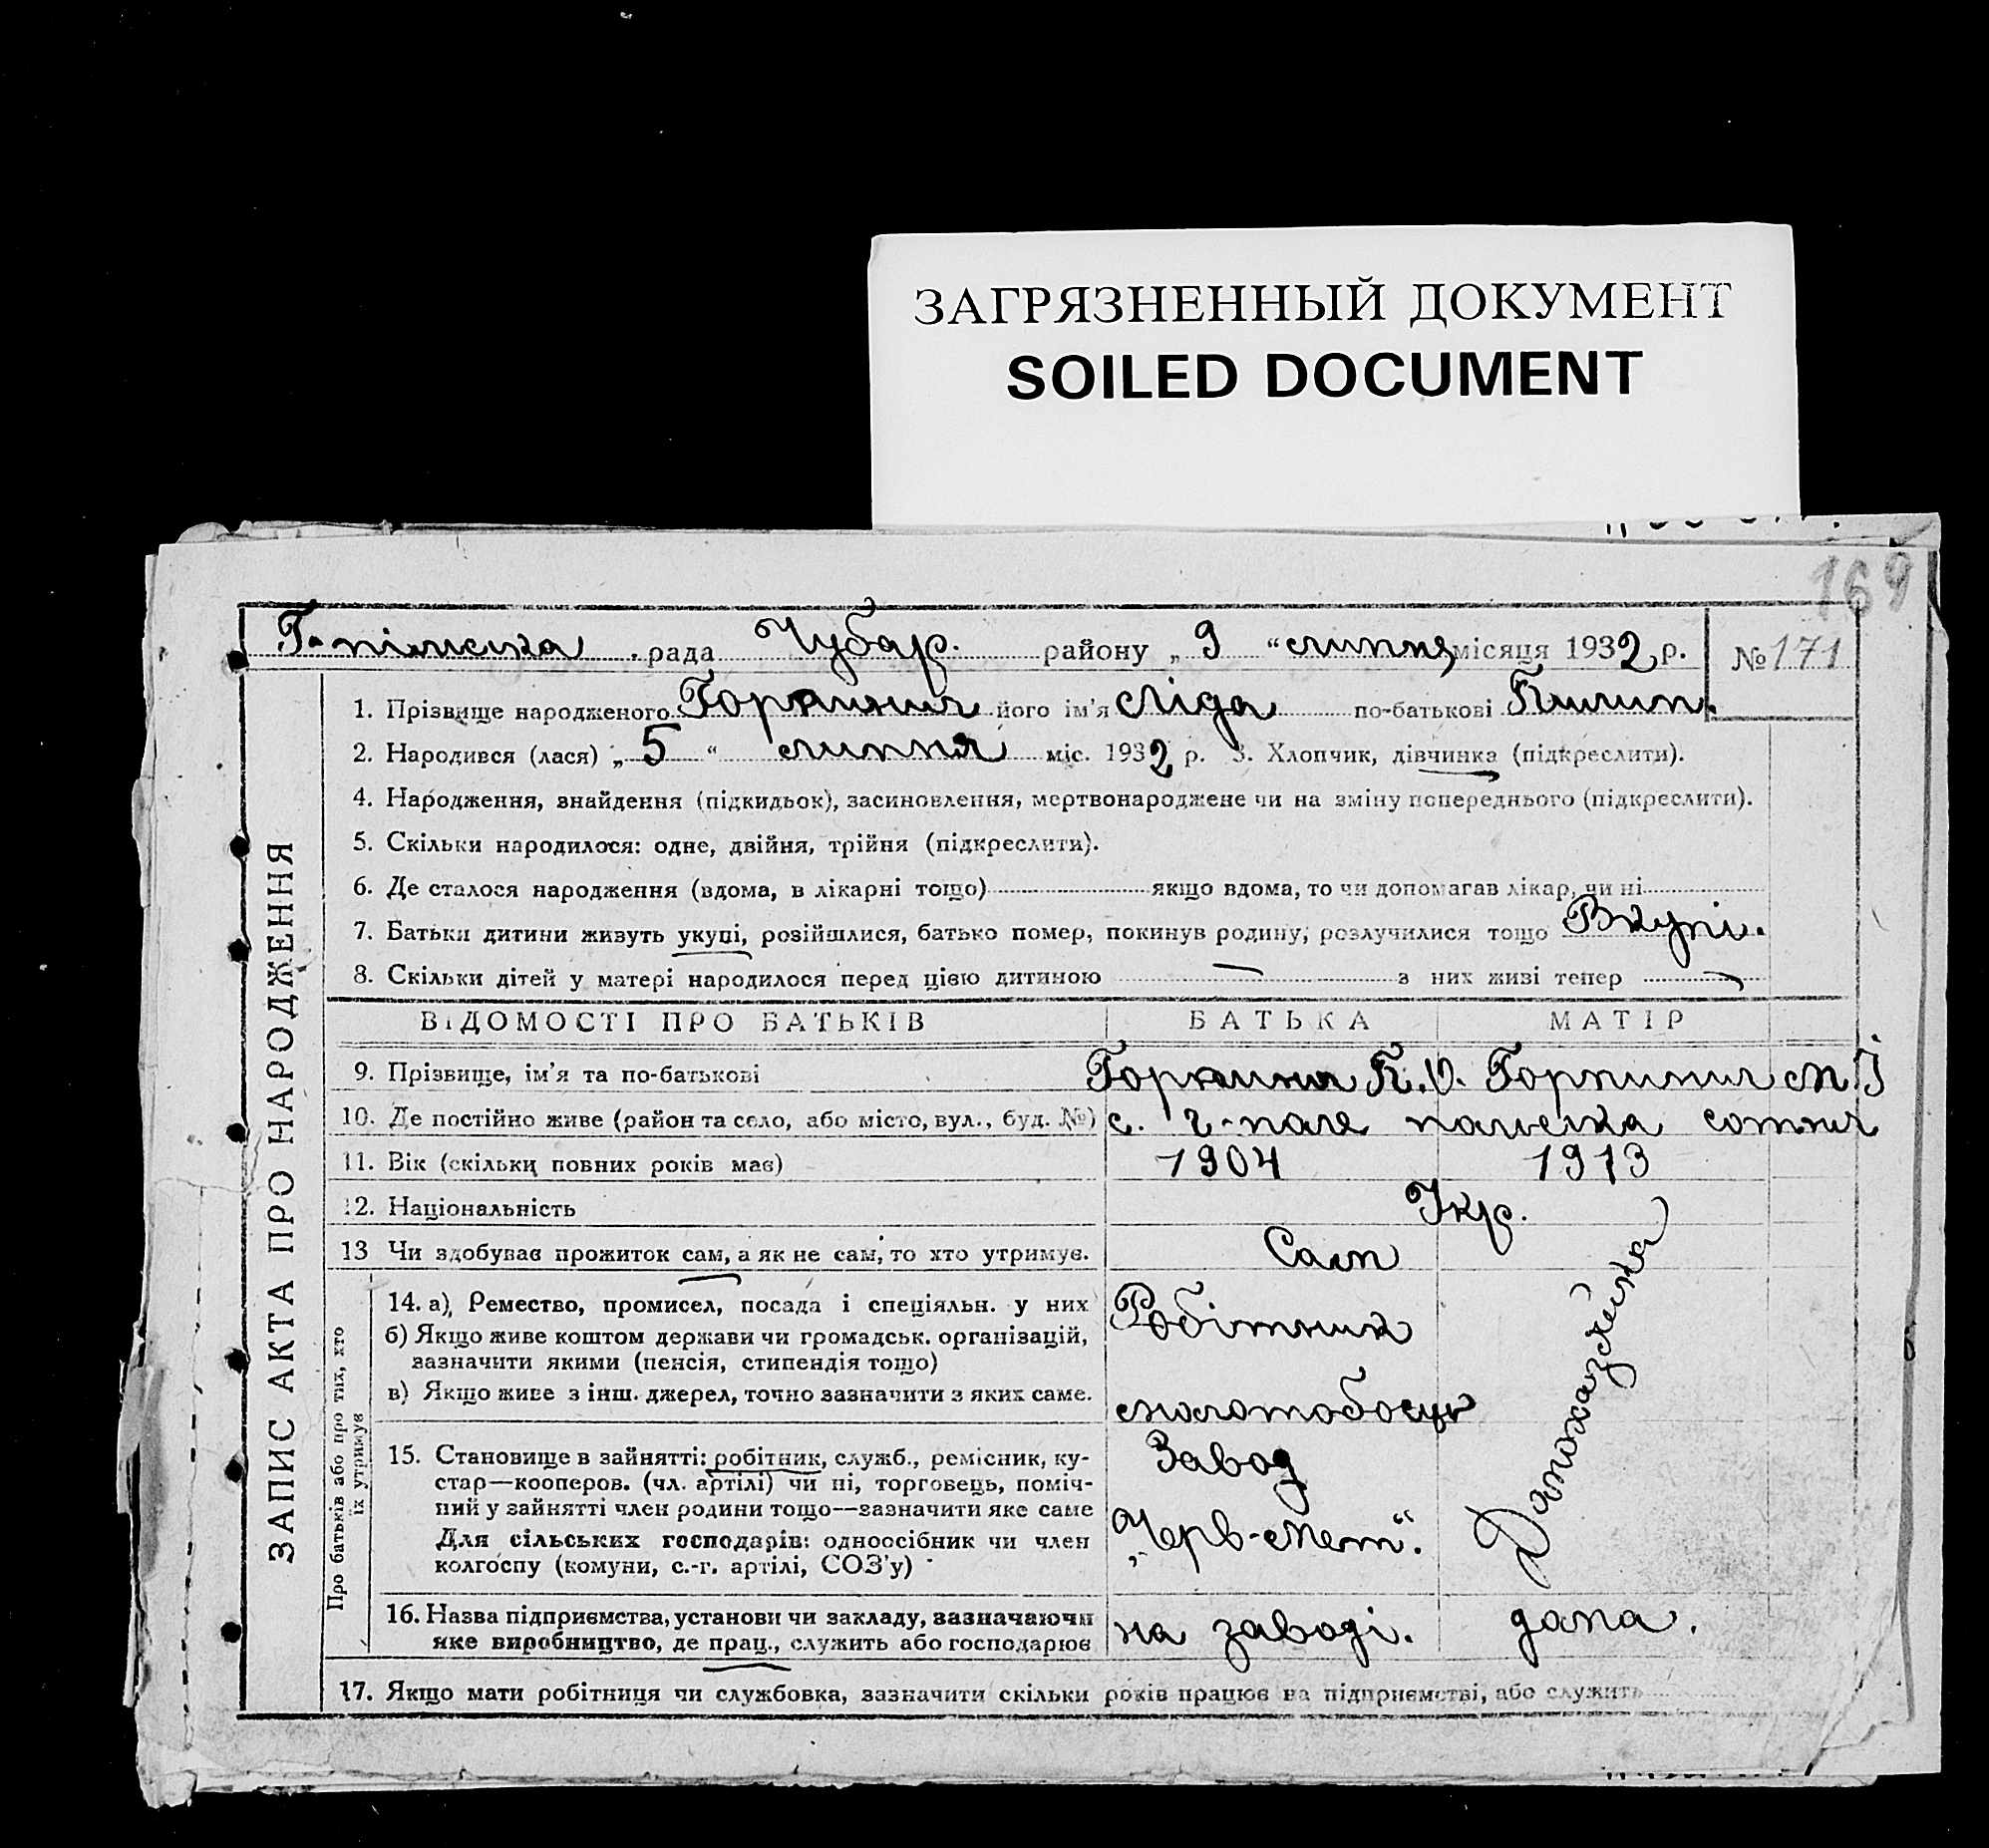 ЗАГРЯЗНЕННЫЙ ДОКУМЕНТ
SOILED DOCUMENT
169
Г-пільська рада Чубар. району „ 9 “ липня місяця 1932 р. № 171
1. Прізвище народженого Горпинич його ім'я Ліда по-батькові Килип.
2. Народився (лася) „ 5 “ липня міс. 1932 р. 3. Хлопчик, дівчинка (підкреслити).
4. Народження, знайдення (підкидьок), засиновлення, мертвонароджене чи на зміну попереднього (підкреслити).
5. Скільки народилося: одне, двійня, трійня (підкреслити).
6. Де сталося народження (вдома, в лікарні тощо) якщо вдома, то чи допомагав лікар, чи ні
7. Батьки дитини живуть укупі, розійшлися, батько помер, покинув родину, розлучилися тощо Вкупі.
8. Скільки дітей у матері народилося перед цією дитиною — з них живі тепер —
ЗАПИС АКТА ПРО НАРОДЖЕННЯ
ВІДОМОСТІ ПРО БАТЬКІВ БАТЬКА МАТІР
9. Прізвище, ім'я та по-батькові Горпинич К.О. Горпинич М.І
10. Де постійно живе (район та село, або місто, вул., буд. №) с. Г-поле польська сотня
11. Вік (скільки повних років має) 1904 1913
12. Національність Укр.
13 Чи здобував прожиток сам, а як не сам, то хто утримує. Сам
Про батьків або про тих, хто їх утримує
14. а) Ремество, промисел, посада і спеціяльн. у них Робітник
б) Якщо живе коштом держави чи громадськ. організацій,
зазначити якими (пенсія, стипендія тощо)
в) Якщо живе з інш. джерел, точно зазначити з яких саме. молотобоєць
Домохазяйка
15. Становище в зайнятті: робітник, служб., ремісник, ку- Завод
стар—кооперов. (чл. артілі) чи ні, торговець, поміч-
ний у зайнятті член родини тощо—зазначити яке саме „Черв-Мет“.
Для сільських господарів: одноосібник чи член
колгоспу (комуни, с.-г. артілі, СОЗ'у)
16. Назва підприємства, установи чи закладу, зазначаючи на заводі. дома.
яке виробництво, де прац., служить або господарює
17. Якщо мати робітниця чи службовка, зазначити скільки років працює на підприємстві, або служить